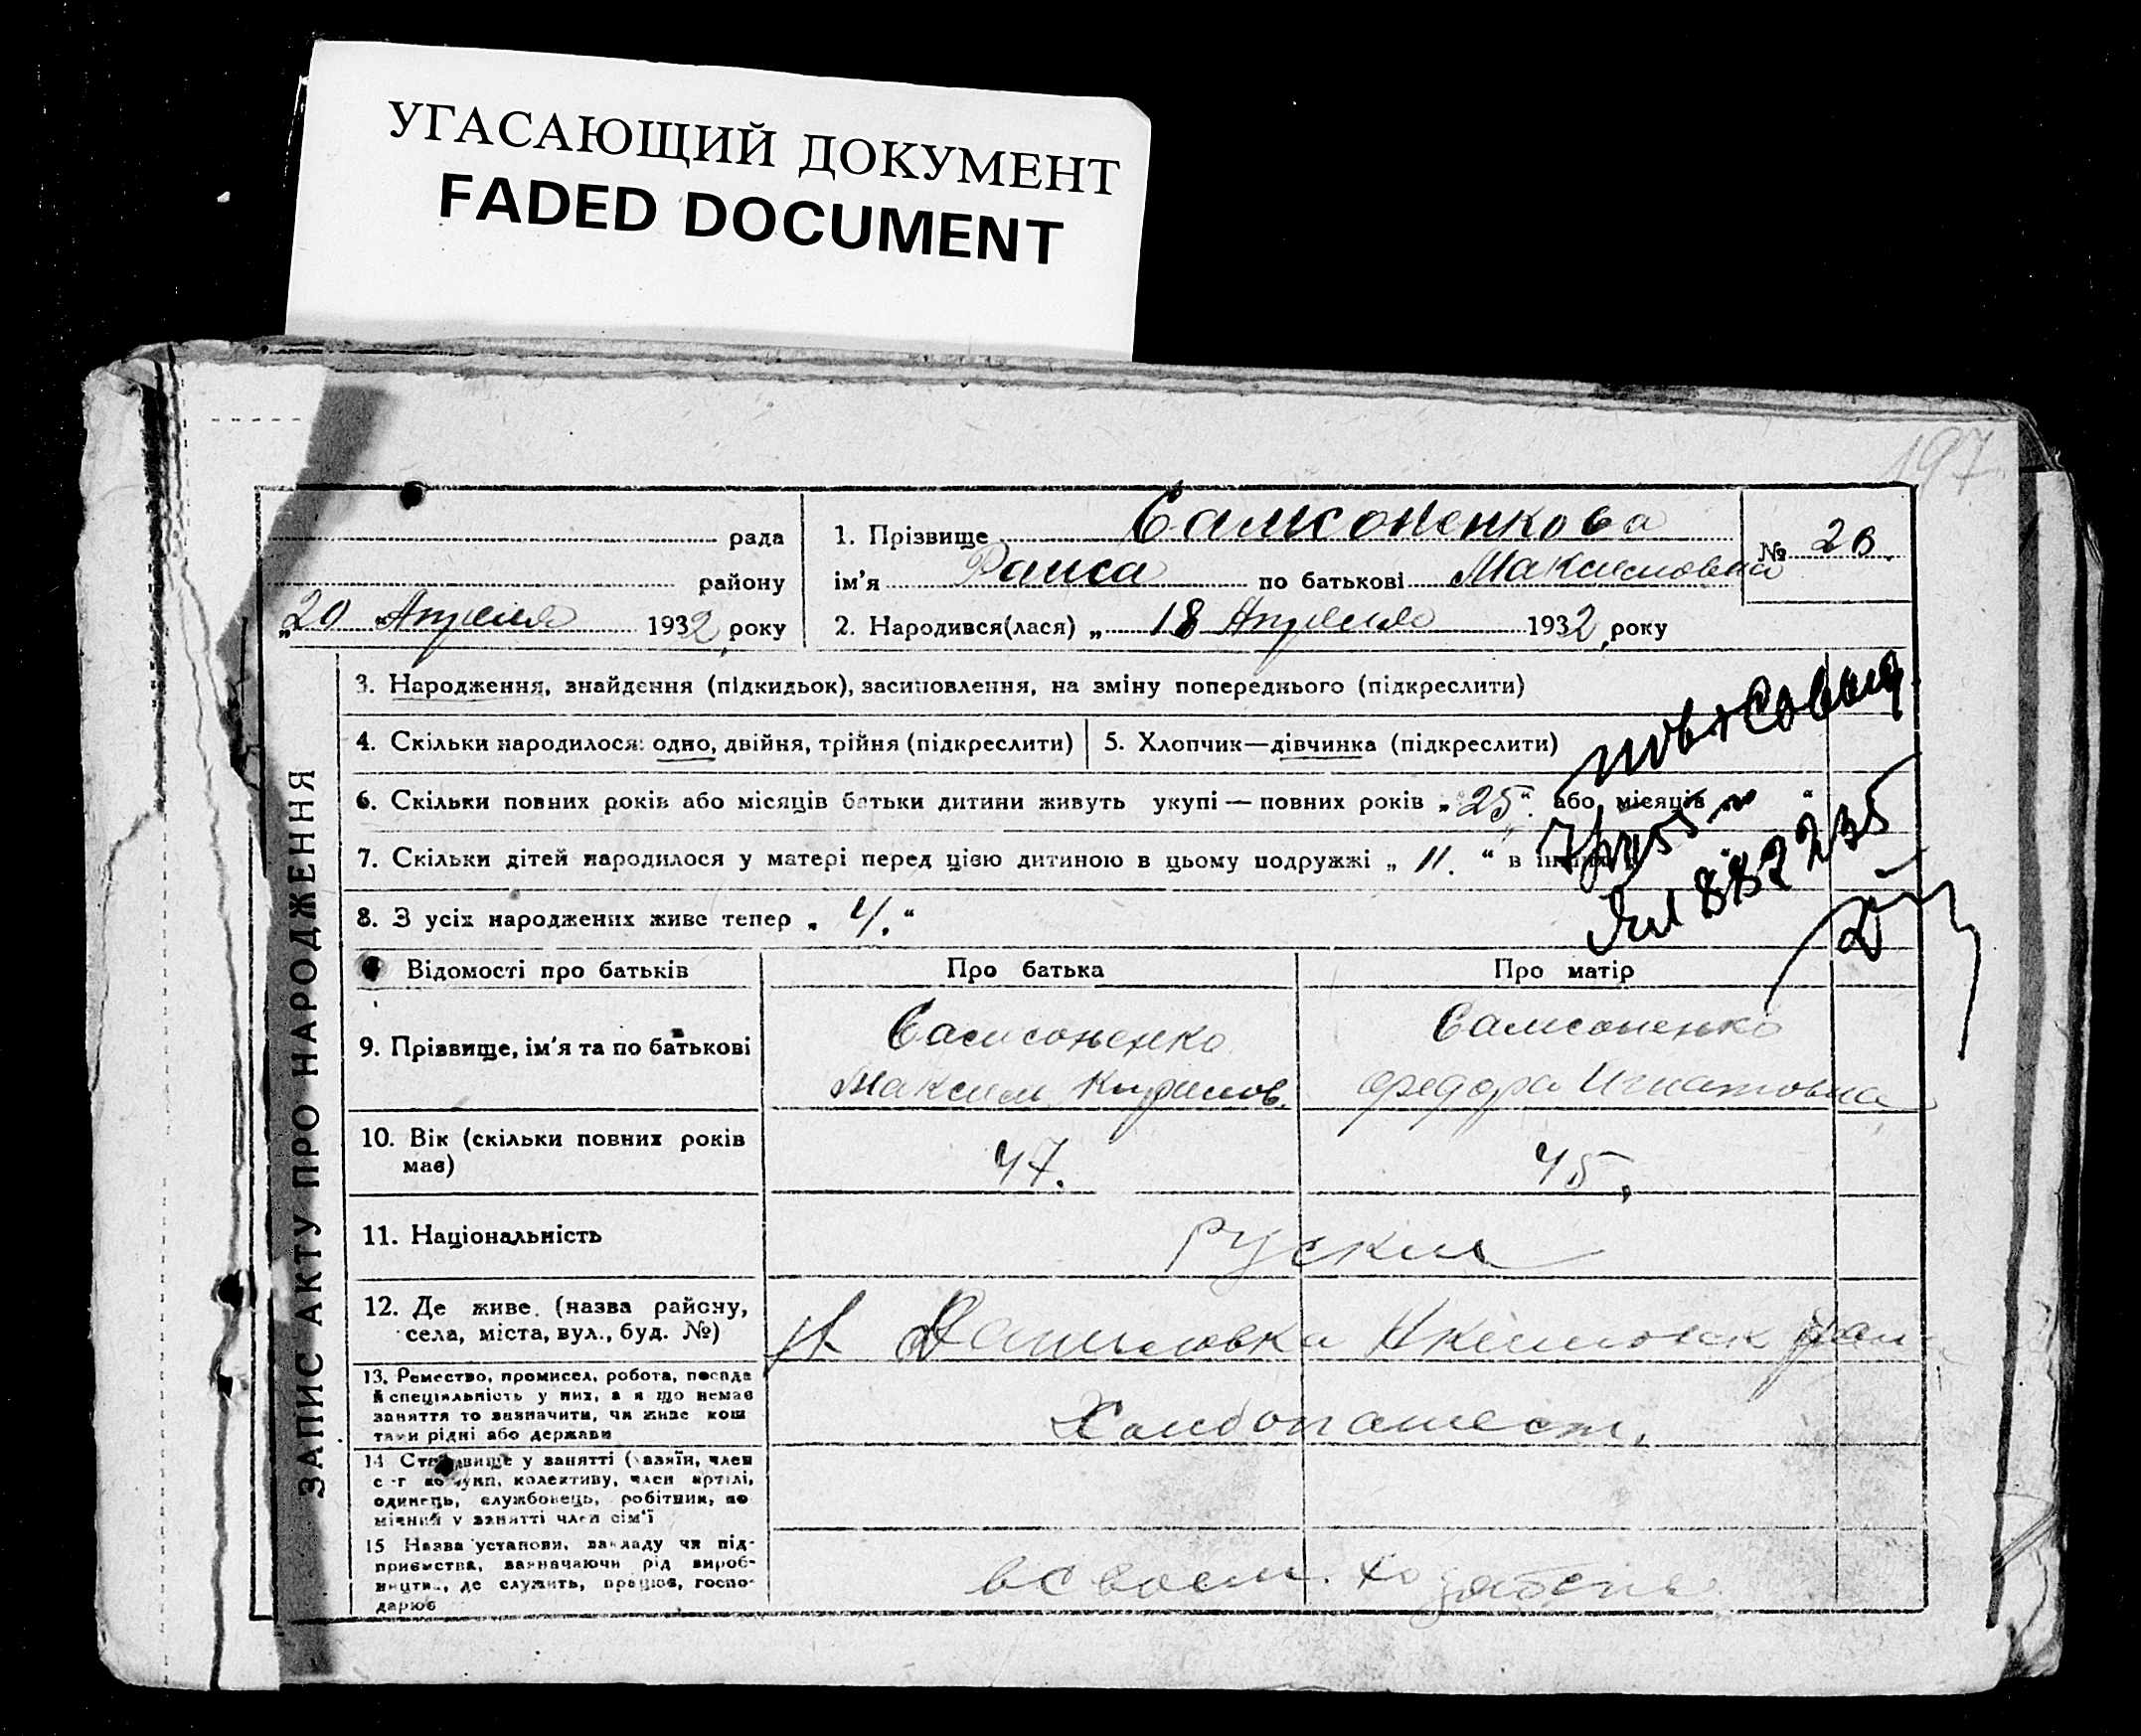 УГАСАЮЩИЙ ДОКУМЕНТ
FADED DOCUMENT
197
рада
району
„20 Апреля 1932 року
1. Прізвище Самсоненкова
ім'я Раиса по батькові Максимовна
№ 28.
2. Народився(лася) „ 18 Апреля 1932 року
ЗАПИС АКТУ ПРО НАРОДЖЕННЯ
3. Народження, знайдення (підкидьок), засиновлення, на зміну попереднього (підкреслити)
4. Скільки народилося: одно, двійня, трійня (підкреслити)
5. Хлопчик—дівчинка (підкреслити)
6. Скільки повних років або місяців батьки дитини живуть укупі — повних років „25“. або місяців „ “
7. Скільки дітей народилося у матері перед цією дитиною в цьому подружжі „ 11. “ в
8. З усіх народжених живе тепер „ 4. “
Відомості про батьків
Про батька
Про матір
9. Прізвище, ім'я та по батькові
Самсоненко
Максим Кирилов.
Самсоненко
Федора Игнатовна
10. Вік (скільки повних років має)
47.
45,
11. Національність
Руские
12. Де живе (назва району,
села, міста, вул., буд. №)
Даниловка Акимовск
13. Ремество, промисел, робота, посада
й спеціяльність у них, а я що немає
заняття то зазначити, чи живе кош
тами рідні або держави
Хлибопашест.
14 Становище у занятті (хазяїн, член
с-г комуни, колективу, член артілі,
одинець, службовець, робітник, по
мічний у занятті член сім'ї
15 Назва установи, закладу чи під-
приємства, зазначаючи рід вироб-
ництва, де служить, працює, госпо-
дарює
в своем.